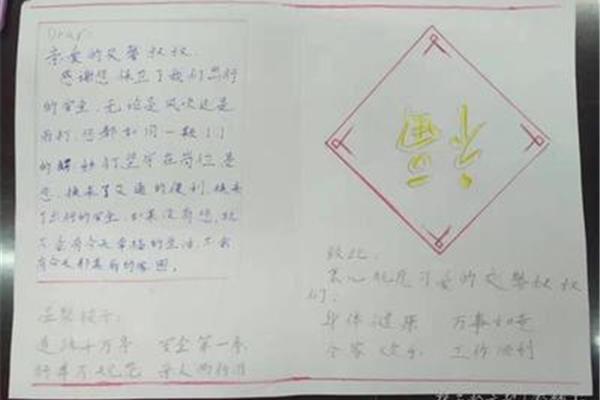 Dear:
亲爱的交警叔叔.
感谢您保卫了我们出行
的安全,无论是风吹还是
雨打,您都如同一颗
的 钉坚守在岗位 是
您,换来了交通的便利,换来
了出行的安全,如果没有您,就
不会有今天幸福的生活,不会
有今天那美丽的家园。
温馨提示:
道路千万条 安全第一条
行车不规范 亲人两行泪
福
致此:
衷心祝愿可爱的交警叔叔
们:
身体健康 万事如意
合家 工作顺利